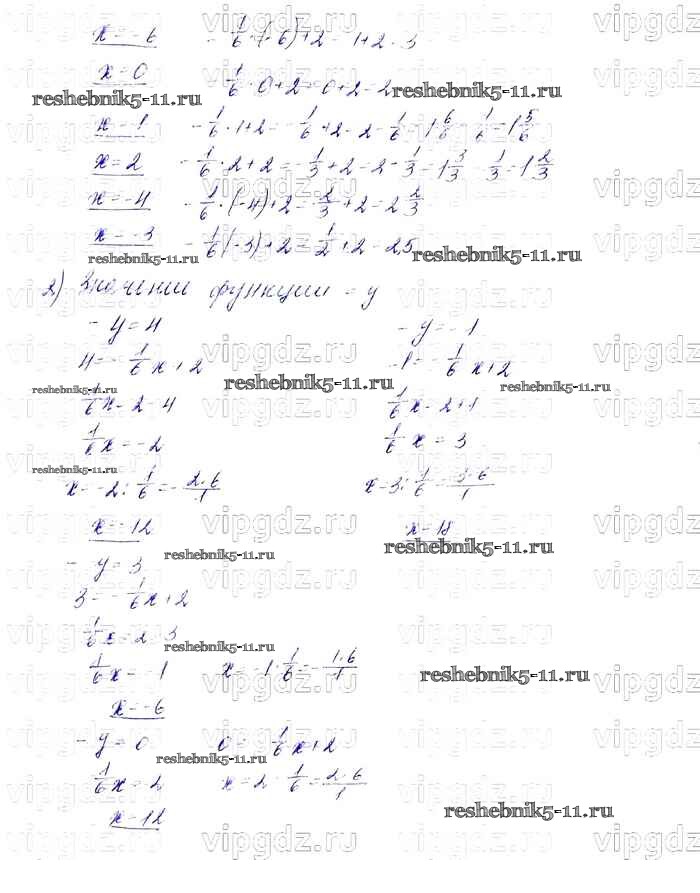 x = -6   -1/6·(-6)+2 = 1+2 = 3
x = 0   -1/6·0+2 = 0+2 = 2
reshebnik5-11.ru   reshebnik5-11.ru
x = 1   -1/6·1+2 = -1/6+2 = 2-1/6 = 1 6/6 - 1/6 = 1 5/6
x = 2   -1/6·2+2 = -1/3+2 = 2-1/3 = 1 3/3 - 1/3 = 1 2/3
x = -4   -1/6·(-4)+2 = 2/3+2 = 2 2/3
x = -3   -1/6(-3)+2 = 1/2+2 = 2,5
reshebnik5-11.ru   reshebnik5-11.ru
2) Значении функции = y
- y = 4   - y = -1
4 = -1/6 x+2   -1 = -1/6 x+2
reshebnik5-11.ru   reshebnik5-11.ru   reshebnik5-11.ru
1/6 x = 2-4   1/6 x = 2+1
1/6 x = -2   1/6 x = 3
reshebnik5-11.ru
x = -2:1/6 = -2·6/1   x = 3:1/6 = 3·6/1
x = -12   x = 18
reshebnik5-11.ru   reshebnik5-11.ru
- y = 3
3 = -1/6 x+2
1/6 x = 2-3
reshebnik5-11.ru
1/6 x = -1   x = -1:1/6 = -1·6/1
reshebnik5-11.ru
x = -6
- y = 0   0 = -1/6 x+2
reshebnik5-11.ru
1/6 x = 2   x = 2:1/6 = 2·6/1
x = 12
reshebnik5-11.ru
vipgdz.ru